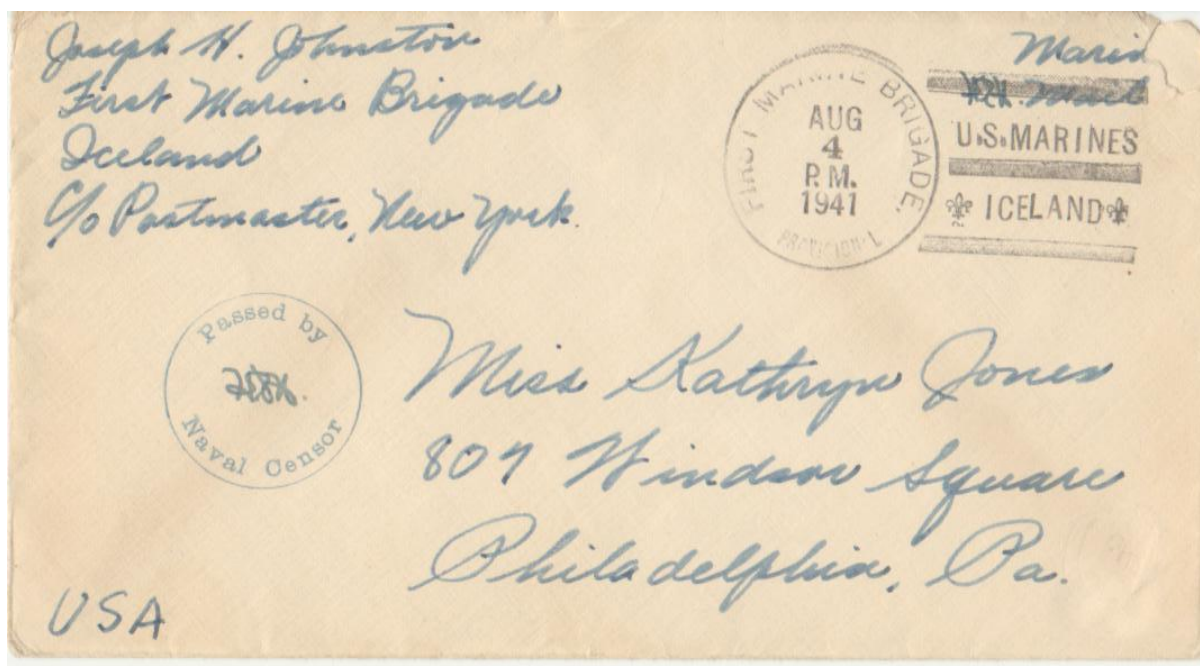 Joseph H. Johnston
First Marine Brigade
Iceland
C/o Postmaster, New York.
FIRST MARINE BRIGADE.
AUG
4
P.M.
1941
PROVISIONAL
Marin
Mail
U.S. MARINES
ICELAND
Passed by
Naval Censor
Miss Kathryn Jones
807 Windsor Square
Philadelphia, Pa.
USA